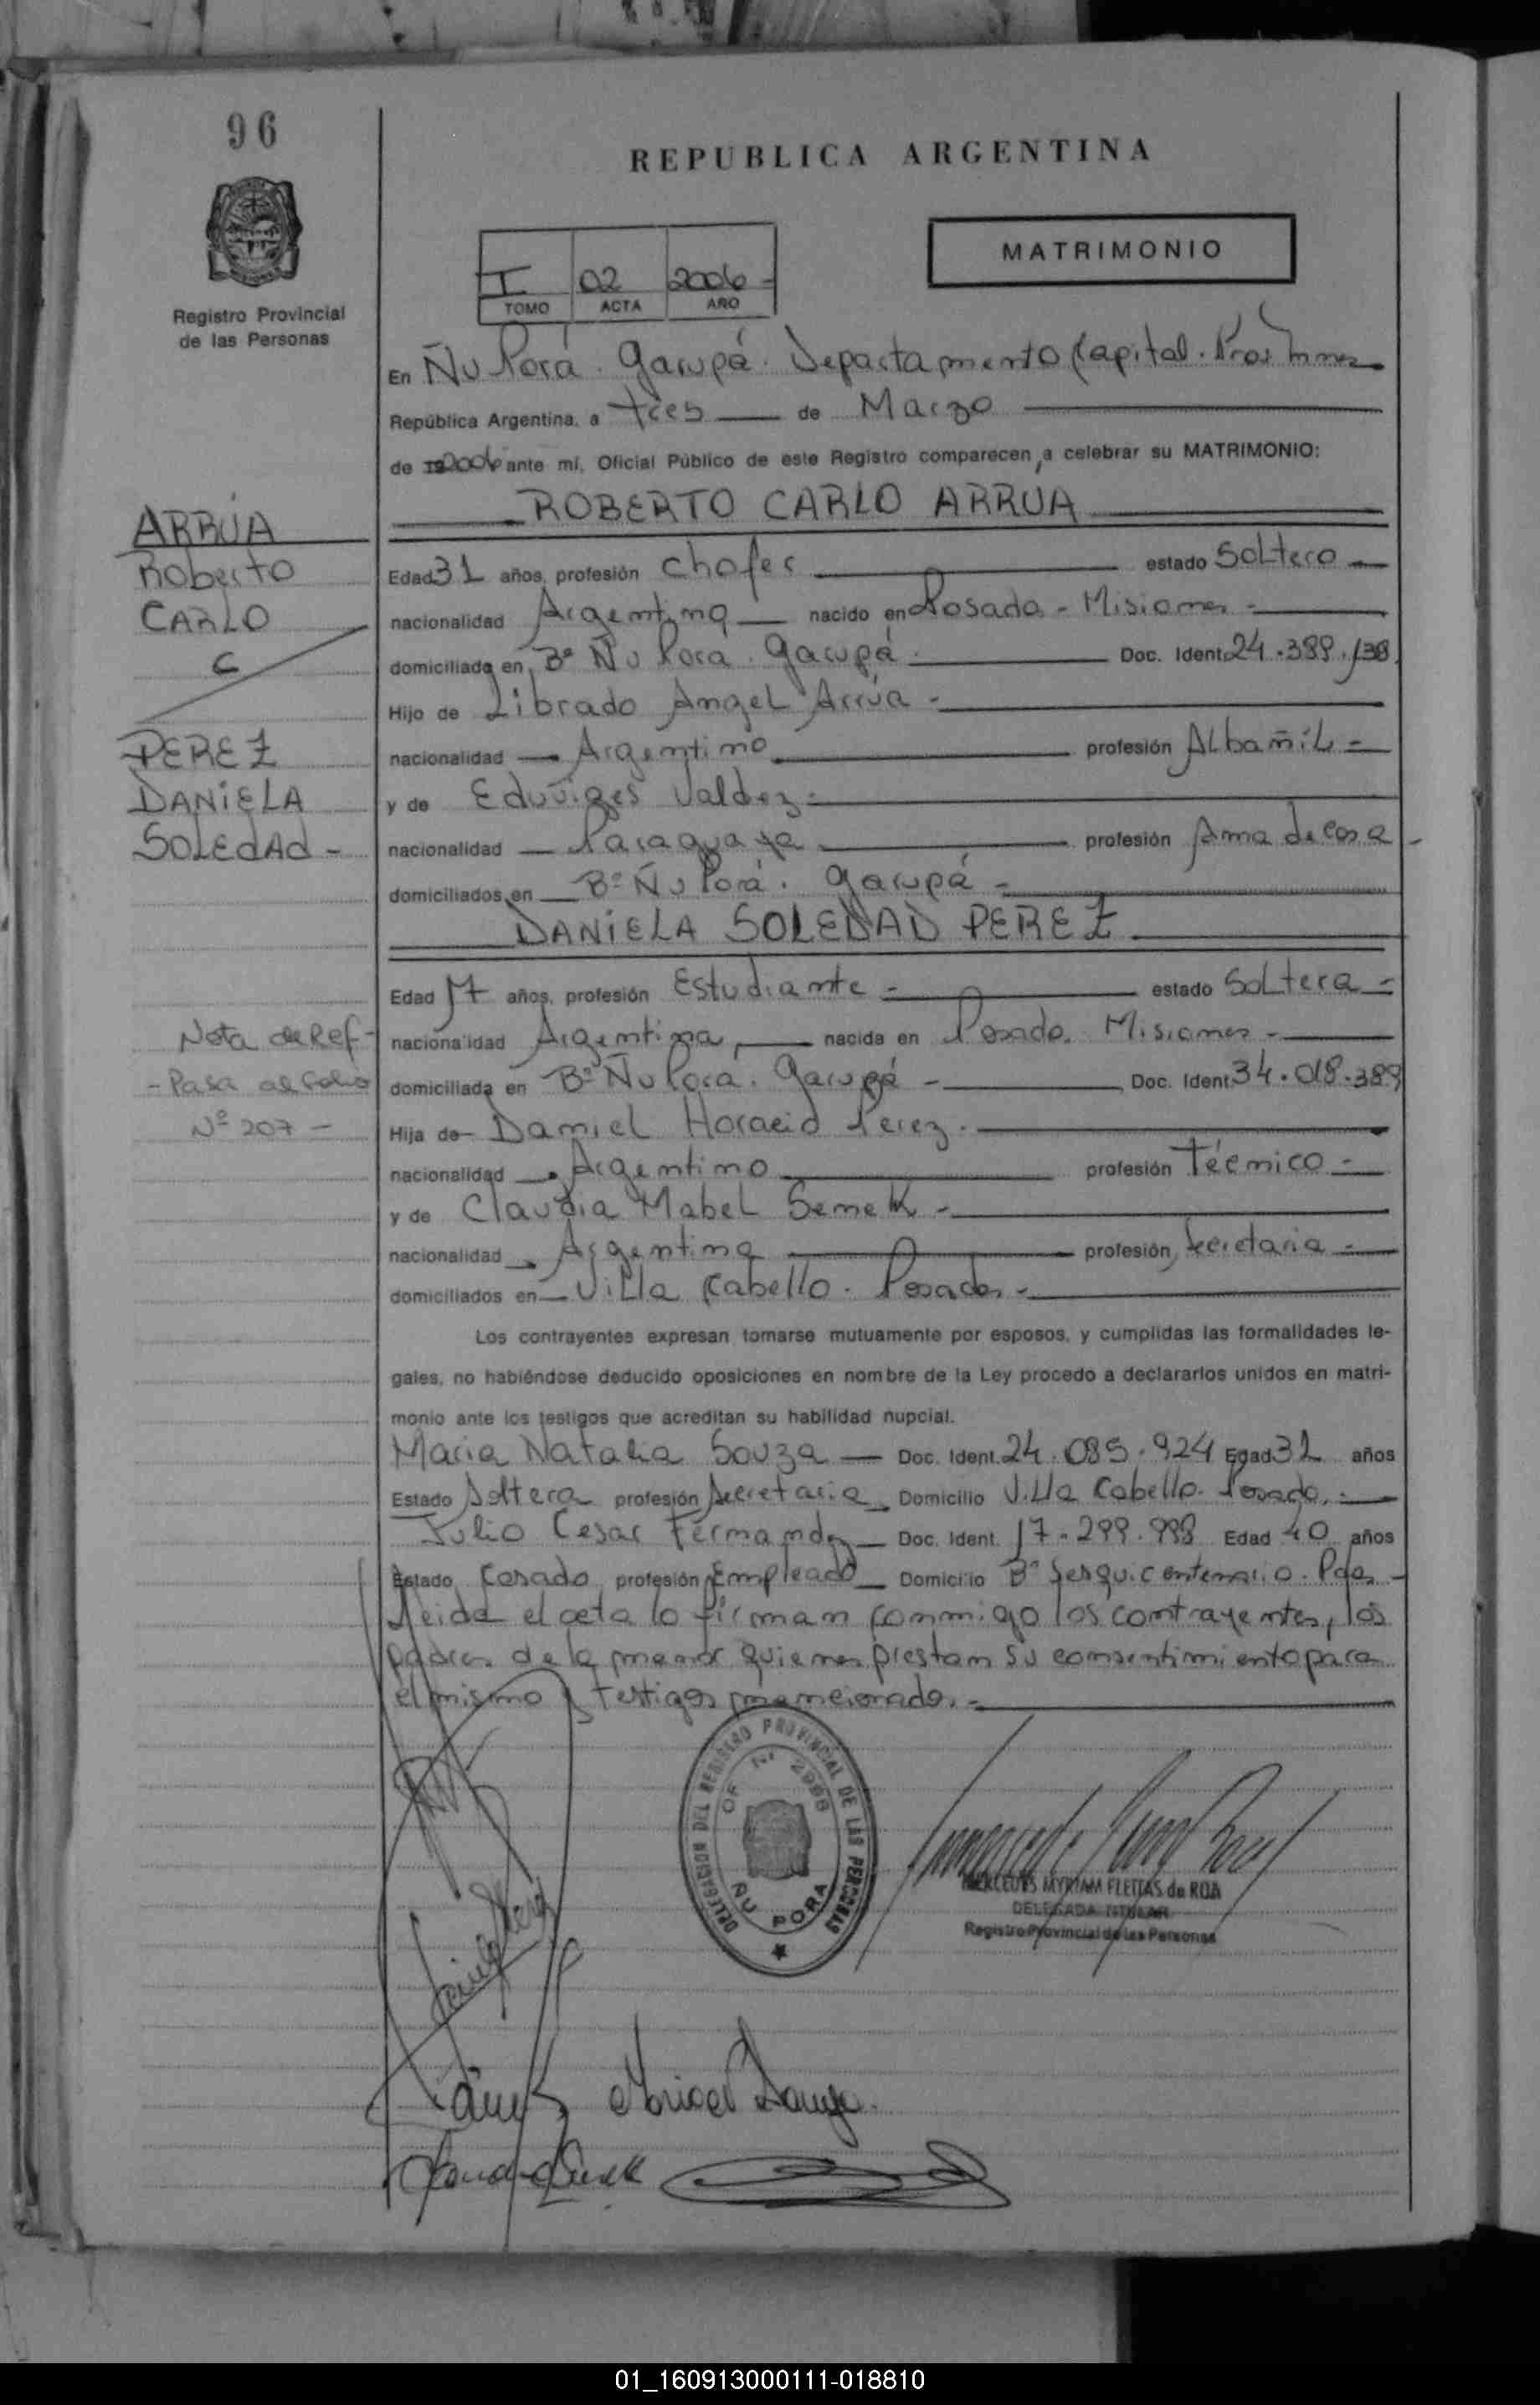 96
REPUBLICA ARGENTINA
Registro Provincial
de las Personas
MATRIMONIO
I 02 2006
TOMO ACTA AÑO
En Ñu Porá. Garupá. Departamento Capital.
República Argentina, a tres de Marzo
de 2006 ante mí, Oficial Público de este Registro comparecen a celebrar su MATRIMONIO:
ROBERTO CARLO ARRUA
ARRUA
Roberto
CARLO
c
PEREZ
DANIELA
SOLEDAD -
Edad 31 años, profesión chofer estado Soltero
nacionalidad Argentina nacido en Posadas - Misiones -
domiciliado en Bº Ñu Pora. Garupá Doc. Ident. 24.389.138
Hijo de Librado Angel Arrúa -
nacionalidad Argentino profesión Albañil -
y de Eduviges Valdez -
nacionalidad Paraguaya profesión Ama de Casa -
domiciliados en Bº Ñu Porá. Garupá -
DANIELA SOLEDAD PEREZ
Edad 17 años, profesión Estudiante - estado Soltera -
nacionalidad Argentina, nacida en Posadas. Misiones -
domiciliada en Bº Ñu Porá. Garupá - Doc. Ident. 34.018.389
Hija de Daniel Horacio Perez.
nacionalidad Argentino profesión Técnico -
y de Claudia Mabel Semek -
nacionalidad Argentina profesión Secretaria -
domiciliados en Villa Cabello. Posadas -
Nota de Ref -
- Pasa al folio
Nº 207 -
Los contrayentes expresan tomarse mutuamente por esposos, y cumplidas las formalidades le-
gales, no habiéndose deducido oposiciones en nombre de la Ley procedo a declararlos unidos en matri-
monio ante los testigos que acreditan su habilidad nupcial.
Maria Natalia Souza Doc. Ident. 24.085.924 Edad 31 años
Estado Soltera profesión Secretaria Domicilio Villa Cabello. Posadas.
Julio Cesar Fernandez Doc. Ident. 17.299.998 Edad 40 años
Estado Casado profesión Empleado Domicilio Bº Sesquicentenario. Pdas -
Leida el acta la firman conmigo los contrayentes, los
padres de la menor quienes prestan su consentimiento para
el mismo y testigos mencionados. -
DELEGACION DEL REGISTRO PROVINCIAL DE LAS PERSONAS
OF Nº 2998
ÑU PORA
MERCEDES MYRIAM FLEITAS de ROA
DELEGADA TITULAR
Registro Provincial de las Personas
01_160913000111-018810